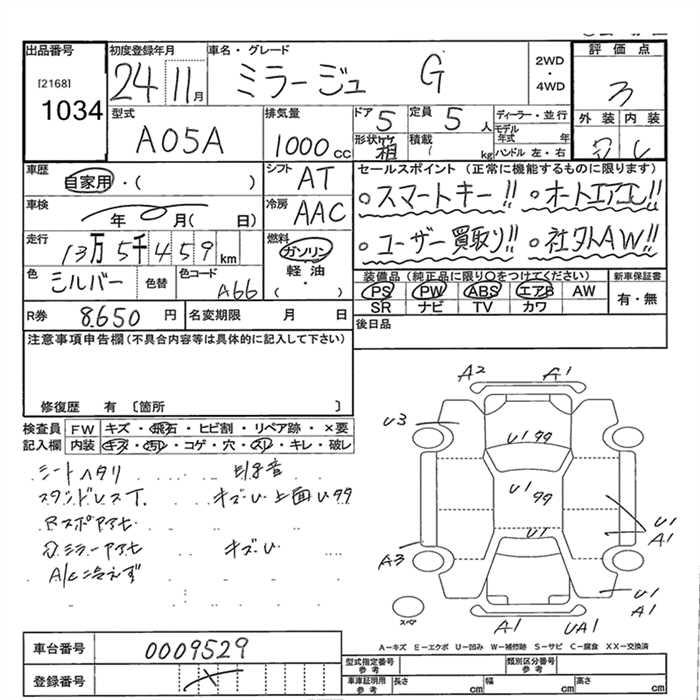 出品番号
[2168]
1034
初度登録年月
24 11月
車名・グレード
ミラージュ G
2WD
・
4WD
評価点
3
外装 内装
型式
A05A
排気量
1000cc
ドア 5
定員 5人
形状 箱
積載 kg
ディーラー・並行
モデル年式 年
ハンドル 左・右
車歴
自家用・( )
シフト AT
車検
年 月( 日)
冷房 AAC
セールスポイント (正常に機能するものに限ります)
○スマートキー!! ○オートエアコン!!
○ユーザー買取り!! ○社外AW!!
走行
13万5千459km
燃料
ガソリン
軽油・
( )
色 シルバー 色替 色コード A66
装備品 (純正品に限り○をつけてください)
PS PW ABS エアB AW
SR ナビ TV カワ
新車保証書
有・無
R券 8,650円
名変期限 月 日
後日品
注意事項申告欄(不具合内容等は具体的に記入して下さい)
修復歴 有〔箇所 〕
検査員記入欄
FW キズ・飛石・ヒビ割・リペア跡・×要
内装 キズ・汚れ・コゲ・穴・スリ・キレ・破レ
シートヘタリ
A/C冷えず
キズU 上面U99
キズU
A2 A1
U3
U1 99
U1 99
U1
U1
A1
A3
U1
A1
A1 UA1
スペア
A-キズ E-エクボ U-凹み W-補修跡 S-サビ C-腐食 XX-交換済
車台番号 0009529
登録番号
型式指定番号 参考
類別区分番号 参考
車庫証明用 参考
長さ cm 幅 cm 高さ cm